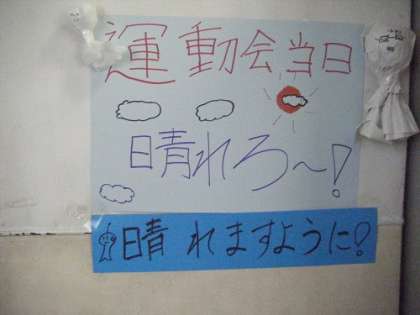 運動会当日
晴れろ～!
晴れますように!